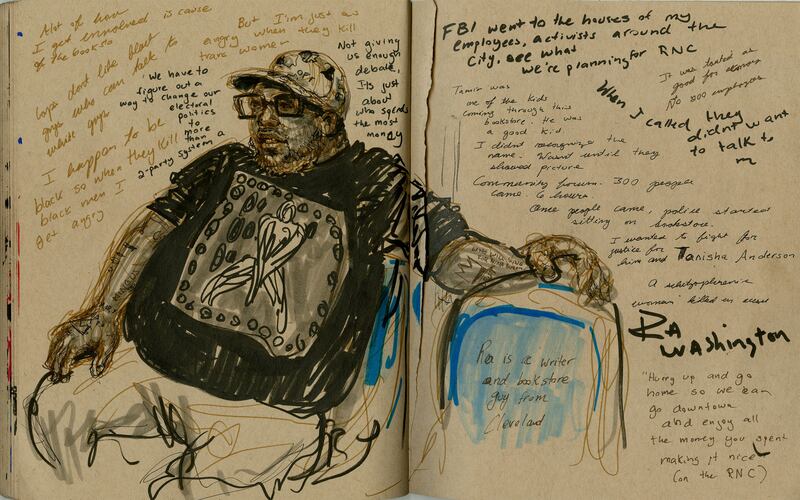 Alot of how
I get involved is cause
of the bookstore
But I'm just as
angry when they kill
trans women
Cops dont like Black
guys who can talk to
white guys
I happen to be
black so when they kill
black men I
get angry
we have to
figure out a
way to change our
electoral
politics
to
more
than a
2-party system
Not giving
us enough
debate,
Its just
about
who spends
the most
money
FBI went to the houses of my
employees, activists around the
City, see what
we're planning for RNC
It was touted as
good for
No 800 employees
When I
called they
didnt want
to talk to
m
Tamir was
one of the kids
coming through this
bookstore. He was
a good kid
I didnt recognize the
name. Wasnt until they
showed picture
Community forum. 300 people
came. 6 hours
Once people came, police started
sitting on bookstore.
I wanted to fight for
justice for
him and Tanisha Anderson
A schizophrenic
woman killed in
RA
Washington
Ra is a writer
and bookstore
guy from
Cleveland
"Hurry up and go
home so we can
go downtown
and enjoy all
the money you spent
making it nice"
(on the RNC)